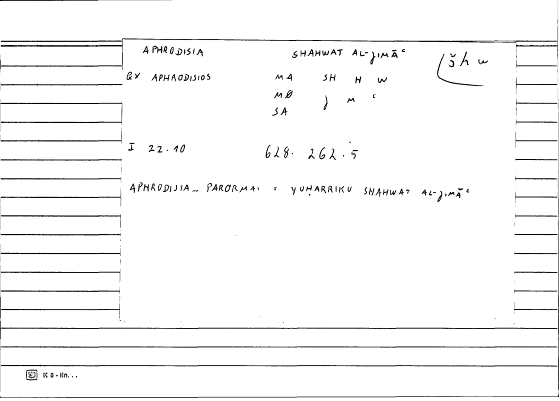 APHRODISIA SHAHWAT AL-JIMĀʿ šhw
QX APHRODISIOS MA SH H W
MØ J M ʿ
SA
I 22.10 628. 262.5
APHRODISIA.. PARORMAI = YUḤARRIKU SHAHWAT AL-JIMĀʿ
K 8 - lin...